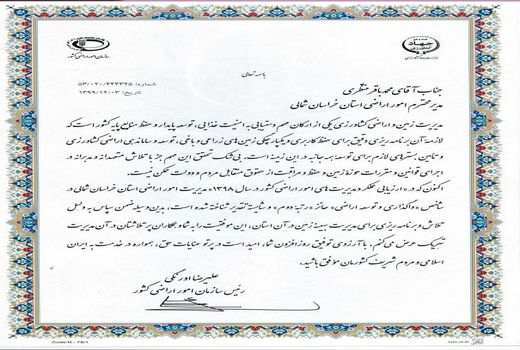 جهاد
سازمان امور اراضی کشور
باسمه تعالی
شماره: ۵۳/۰۲۰/۴۴۴۳۶۵
تاریخ: ۱۳۹۹/۱۲/۰۳
جناب آقای محمد باقر منتظری
مدیر محترم امور اراضی استان خراسان شمالی
مدیریت زمین و اراضی کشاورزی یکی از ارکان مهم دستیابی به امنیت غذایی، توسعه پایدار و حفظ منابع پایه کشور است که
لازمه آن برنامه‌ریزی دقیق برای حفظ کاربری و یکپارچگی زمین‌های زراعی و باغی، توسعه و ساماندهی اراضی کشاورزی
و تامین بسترهای لازم برای توسعه همه جانبه در این زمینه است. بی شک تحقق این مهم جز با تلاش متعهدانه و مدبرانه در
اجرای قوانین و مقررات حوزه زمین و حفظ و مراقبت از حقوق متقابل مردم و دولت ممکن نیست.
اکنون که در «ارزیابی عملکرد مدیریت‌های امور اراضی کشور در سال ۱۳۹۸» مدیریت امور اراضی استان خراسان شمالی در
شاخص «واگذاری و توسعه اراضی» حائز «رتبه دوم» و شایسته تقدیر شناخته شده است، بدین وسیله ضمن سپاس به دلیل
تلاش و برنامه‌ریزی برای مدیریت بهینه زمین در آن استان، این موفقیت را به شما و همکاران پرتلاشتان در آن مدیریت
تبریک عرض می‌کنم. با آرزوی توفیق روزافزون شما، امید است در پرتو عنایات حق، همواره در خدمت به ایران
اسلامی و مردم شریف کشورمان موفق باشید.
علیرضا اورنگی
رئیس سازمان امور اراضی کشور
Code:H - 73/1